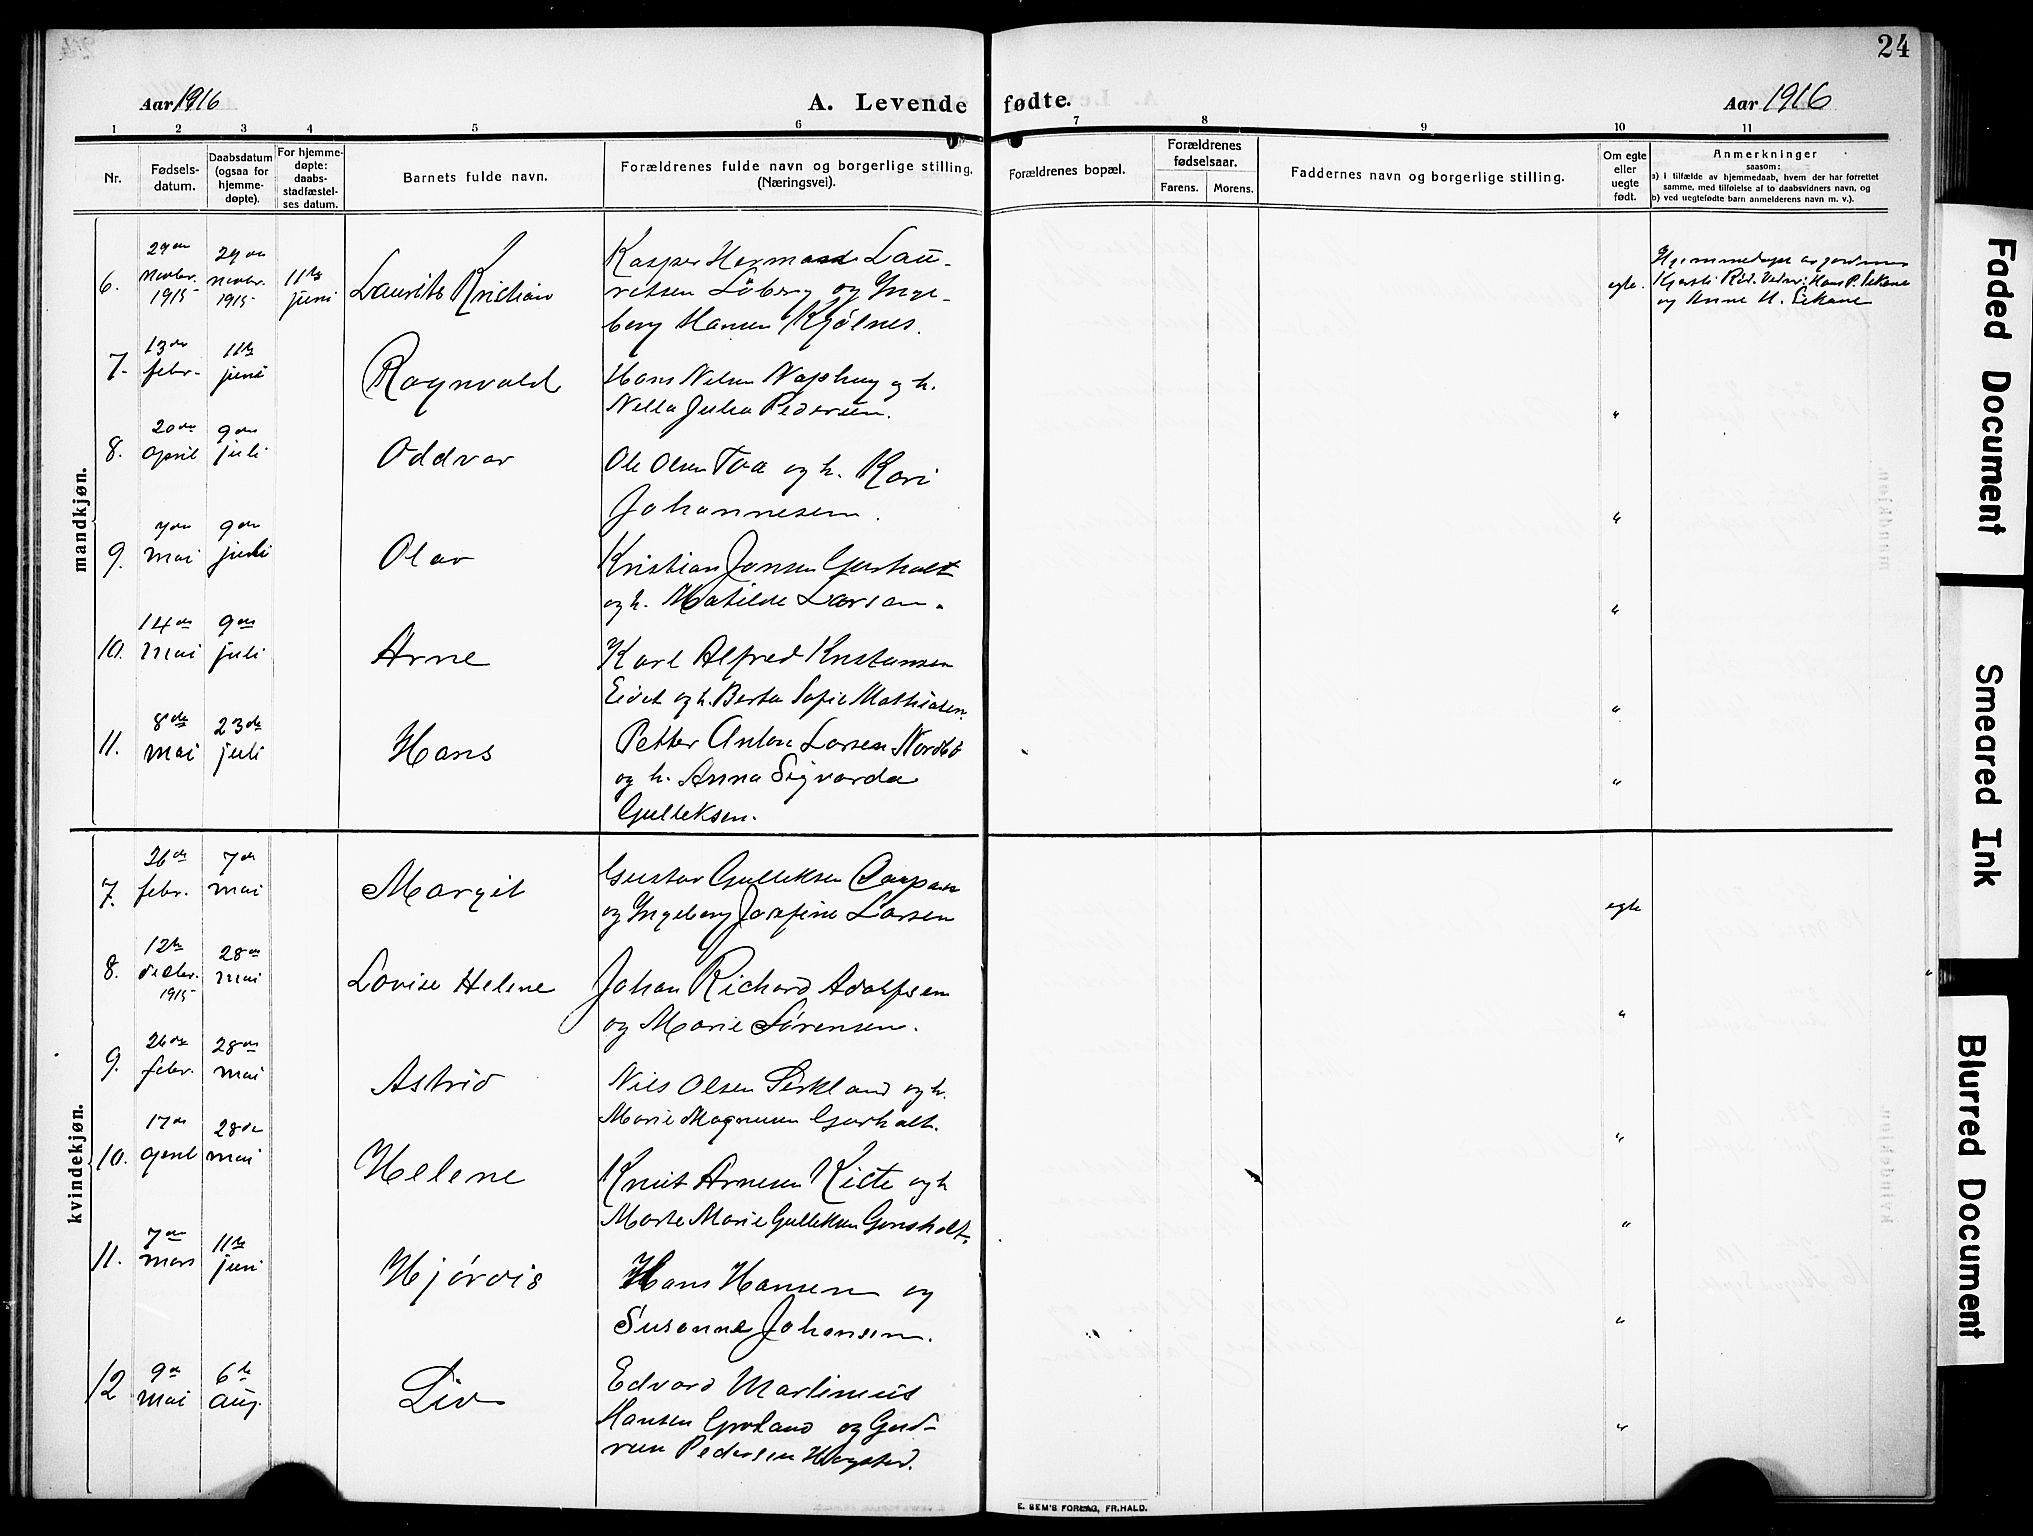 24
Aar 1916
A. Levende fødte.
Aar 1916
1 2 3 4 5 6 7 8 9 10 11
Nr.
Fødsels-
datum.
Daabsdatum
(ogsaa for
hjemme-
døpte).
For hjemme-
døpte:
daabs-
stadfæstel-
ses datum.
Barnets fulde navn.
Forældrenes fulde navn og borgerlige stilling.
(Næringsvei).
Forældrenes bopæl.
Forældrenes
fødselsaar.
Farens. Morens.
Faddernes navn og borgerlige stilling.
Om egte
eller
uegte
født.
Anmerkninger
saasom:
a) i tilfælde av hjemmedaab, hvem der har forrettet
samme, med tilføielse af to daabsvidners navn, og
b) ved uegtefødte barn anmelderens navn m. v.).
mandkjøn.
6.
29de
novbr.
1915
29de
novbr.
1915
11te
juni
Laurits Kristian
Kasper Herman Lau-
ritsen Löberg og Inge-
borg Hansen Kjølnes.
egte.
Hjemmedøpt av jordmor
Kjersti Rød. Vidner: Hans P. Sekane
og Anne H. Sekane
7.
13de
febr.
11te
juni
Ragnvald
Hans Nilsen og h.
Nella Julia Pedersen.
"
8.
20de
april
9de
juli
Oddvar
Ole Olsen Tva og h. Kari
Johannesen.
"
9.
7de
mai
9de
juli
Olav
Kristian Jonsen Gursholt
og h. Matilde Larsen.
"
10.
14de
mai
9de
juli
Arne
Karl Alfred Kristiansen
Eidet og h. Berta Sofie Mathisen.
"
11.
8de
mai
23de
juli
Hans
Petter Anton Larsen Nordbö
og h. Anna Sigvarda
Gulleksen.
"
kvindekjøn.
7.
26de
febr.
7de
mai
Margit
Gustav Gulleksen
og Ingeborg Josefine Larsen
egte
8.
12te
decbr.
1915
28de
mai
Lovise Helene
Johan Richard Adolfsen
og Marie Sörensen.
"
9.
26de
febr.
28de
mai
Astrid
Nils Olsen Sirkland og h.
Marie Magnusen Gursholt.
"
10.
17de
april
28de
mai
Helene
Knut Arnesen Kiste og h
Marte Marie Gulleksen Gonsholt.
"
11.
7de
mars
11te
juni
Hjördis
Hans Hansen og
Susanne Johansen.
"
12
9de
mai
6te
aug.
Liv
Edvard Martinius
Hansen Grotand og Gud-
run Pedersen Hogstad.
"
E. SEM'S FORLAG, FR.HALD.
Faded Document
Smeared Ink
Blurred Document